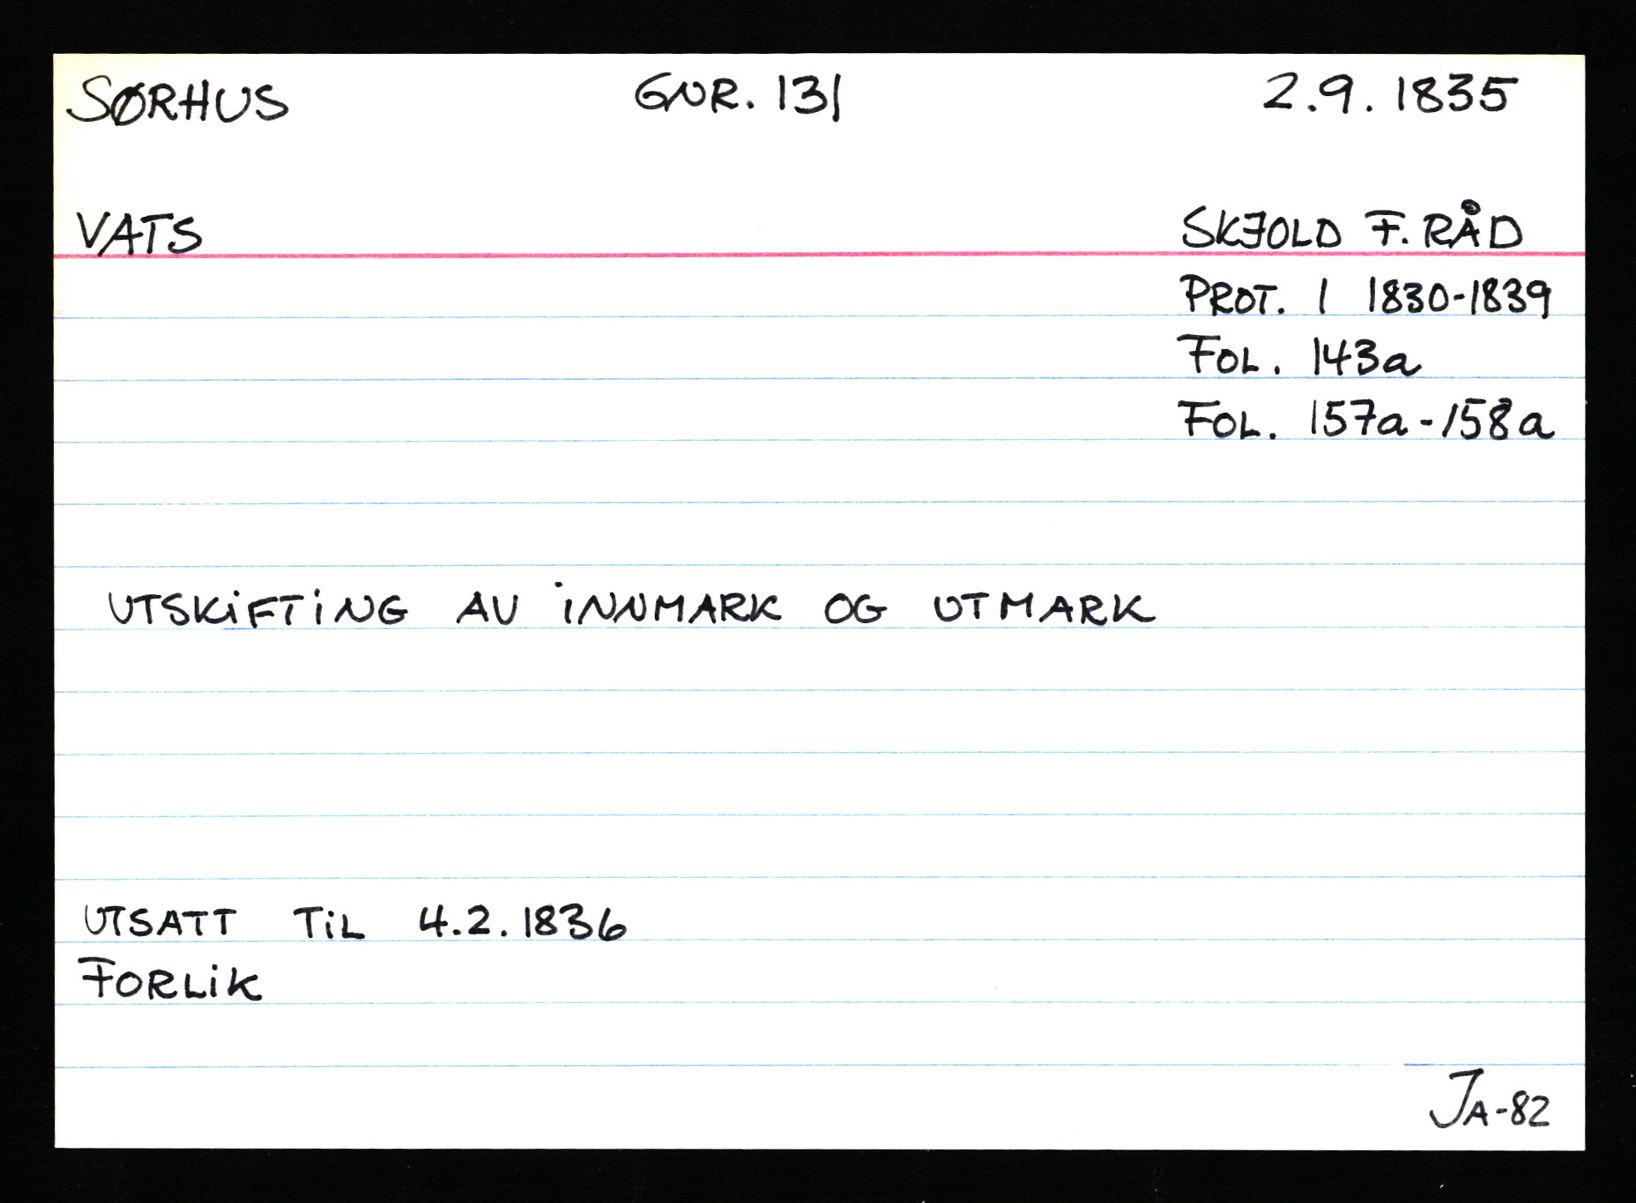 SØRHUS GNR. 131 2.9. 1835
VATS SKJOLD F. RÅD
PROT. 1 1830-1839
FOL. 143a
FOL. 157a-158a
UTSKiFTiNG AV iNNMARK OG UTMARK
UTSATT TiL 4.2.1836
FORLiK
JA-82